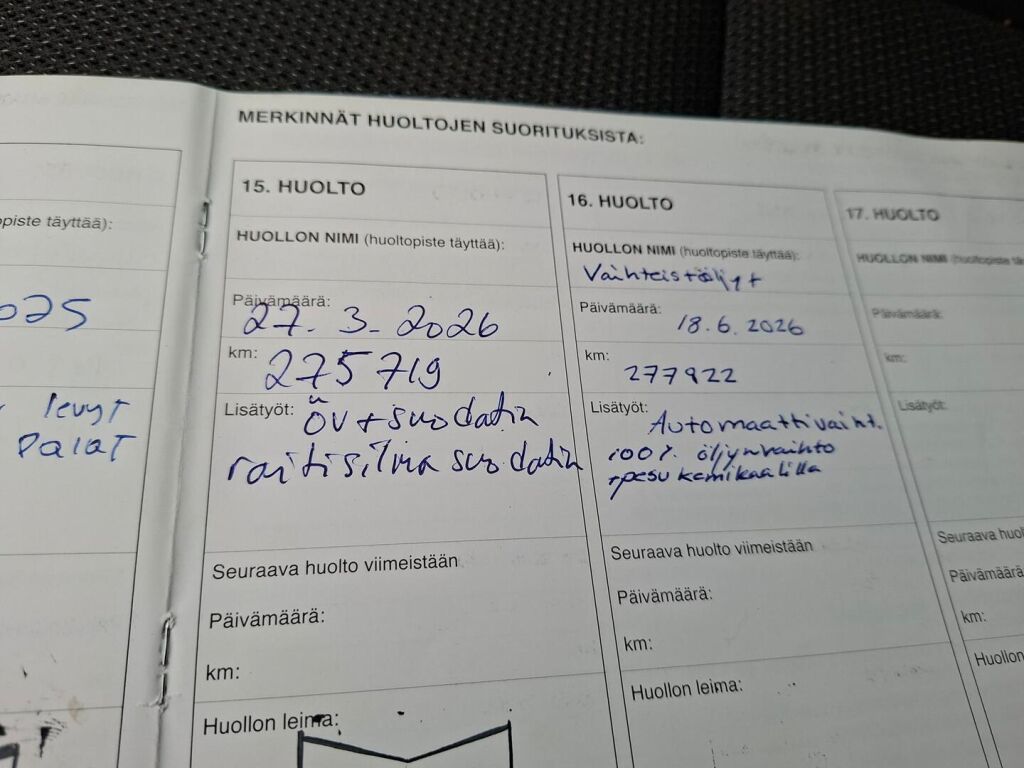 MERKINNÄT HUOLTOJEN SUORITUKSISTA:
opiste täyttää):
025
levyt
Palat
15. HUOLTO
HUOLLON NIMI (huoltopiste täyttää):
Päivämäärä:
27. 3. 2026
km: 275719
Lisätyöt: öv + suodatin
raitisilma suodatin
Seuraava huolto viimeistään
Päivämäärä:
km:
Huollon leima:
16. HUOLTO
HUOLLON NIMI (huoltopiste täyttää):
Vaihteistöljyt
Päivämäärä:
18.6.2026
km:
277922
Lisätyöt:
Automaattivaiht.
100% öljynvaihto
+pesu kemikaalilla
Seuraava huolto viimeistään
Päivämäärä:
km:
Huollon leima:
17. HUOLTO
HUOLLON NIMI (huoltopiste tä
Päivämäärä:
km:
Lisätyöt:
Seuraava huol
Päivämäärä
km:
Huollon